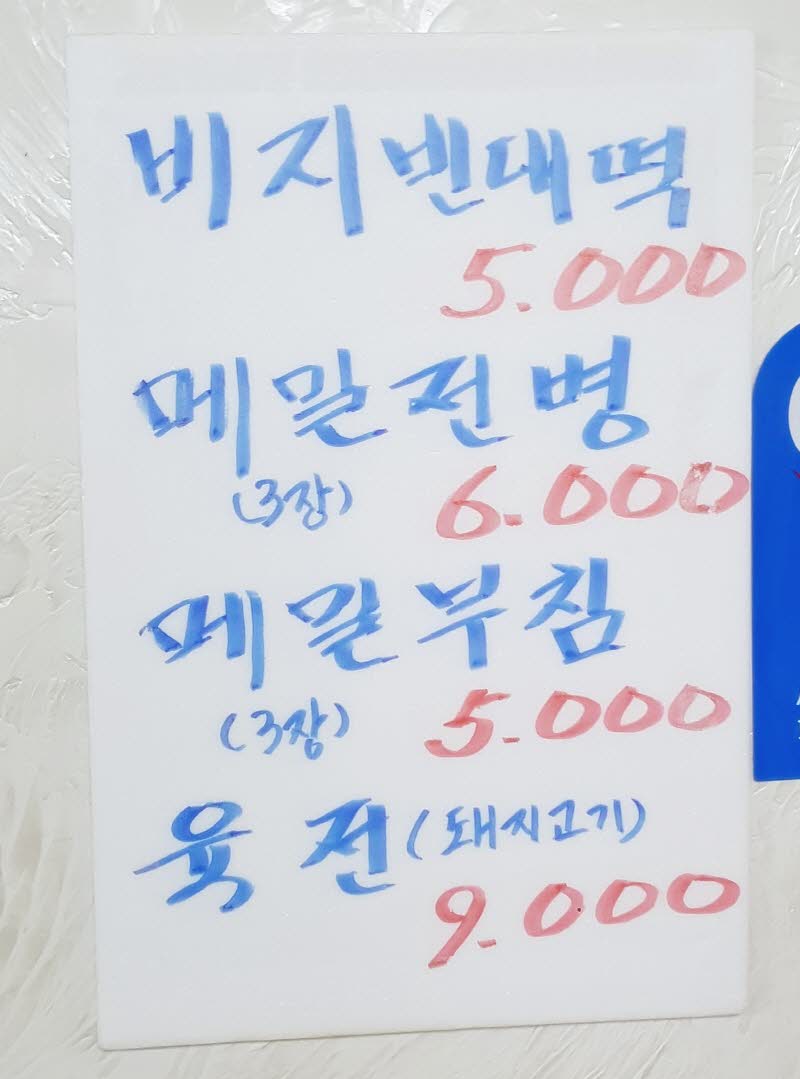 비지빈대떡
5.000
메밀전병
(3장) 6.000
메밀부침
(3장) 5.000
육전(돼지고기)
9.000